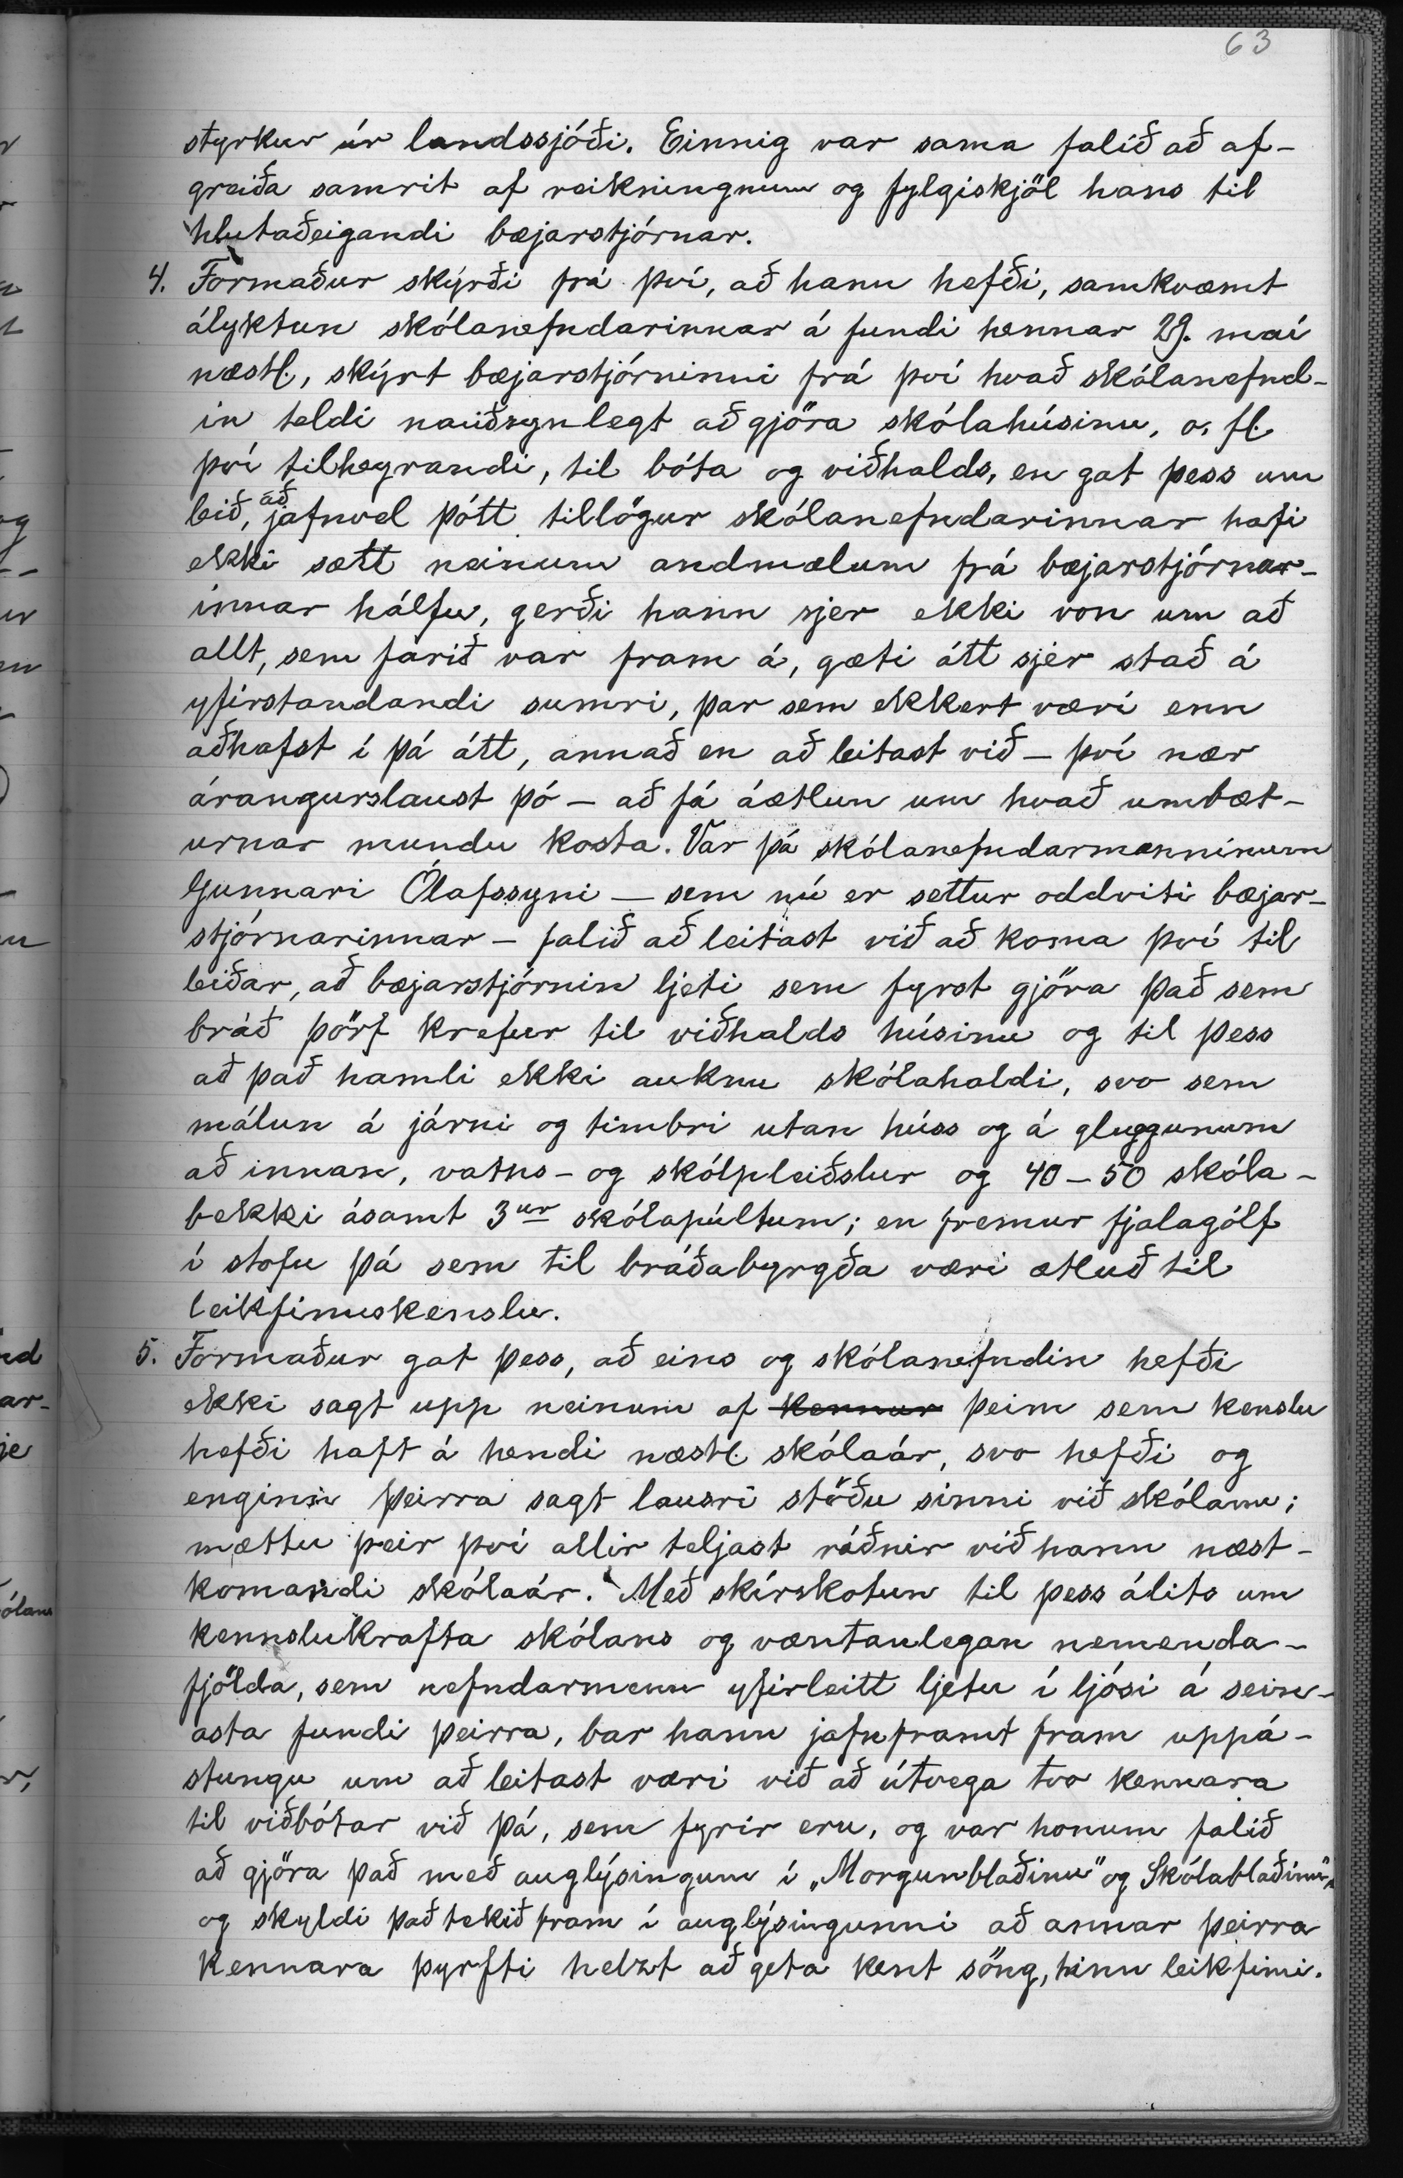 63
styrkur úr landssjóði. Einnig var sama falið að af-
greiða samrit af reikningnum og fylgiskjöl hans til
hlutaðeigandi bæjarstjórnar.
4. Formaður skýrði frá því, að hann hefði, samkvæmt
ályktun skólanefndarinnar á fundi hennar 29. maí
næstl., skýrt bæjarstjórninni frá því hvað skólanefnd-
in teldi nauðsynlegt að gjöra skólahúsinu, o. fl.
því tilheyrandi, til bóta og viðhalds, en gat þess um
leið, að jafnvel þótt tillögur skólanefndarinnar hafi
ekki sætt neinum andmælum frá bæjarstjórnar-
innar hálfu, gerði hann sjer ekki von um að
allt, sem farið var fram á, gæti átt sjer stað á
yfirstandandi sumri, þar sem ekkert væri enn
aðhafst í þá átt, annað en að leitast við - því nær
árangurslaust þó - að fá áætlun um hvað umbæt-
urnar mundu kosta. Var þá skólanefndarmanninum
Gunnari Ólafssyni - sem nú er settur oddviti bæjar-
stjórnarinnar - falið að leitast við að koma því til
leiðar, að bæjarstjórnin ljeti sem fyrst gjöra það sem
bráð þörf krefur til viðhalds húsinu og til þess
að það hamli ekki auknu skólahaldi, svo sem
málun á járni og timbri utan húss og á gluggunum
að innan, vatns- og skólpleiðslur og 40-50 skóla-
bekki ásamt 3ur skólapúltum; en fremur fjalagólf
í stofu þá sem til bráðabyrgða væri ætluð til
leikfimiskenslu.
5. Formaður gat þess, að eins og skólanefndin hefði
ekki sagt upp neinum af kennur þeim sem kenslu
hefði haft á hendi næstl. skólaár, svo hefði og
enginn þeirra sagt lausri stöðu sinni við skólann;
mættu þeir því allir teljast ráðnir við hann næst-
komandi skólaár. Með skírskotun til þess álits um
kennslukrafta skólans og væntanlegan nemenda-
fjölda, sem nefndarmenn yfirleitt ljetu í ljósi á sein-
asta fundi þeirra, bar hann jafnframt fram uppá-
stungu um að leitast væri við að útvega tvo kennara
til viðbótar við þá, sem fyrir eru, og var honum falið
að gjöra það með auglýsingum í „Morgunblaðinu" og Skólablaðinu",
og skyldi það tekið fram í auglýsingunni að annar þeirra
kennara þyrfti helzt að geta kent söng, hinn leikfimi.